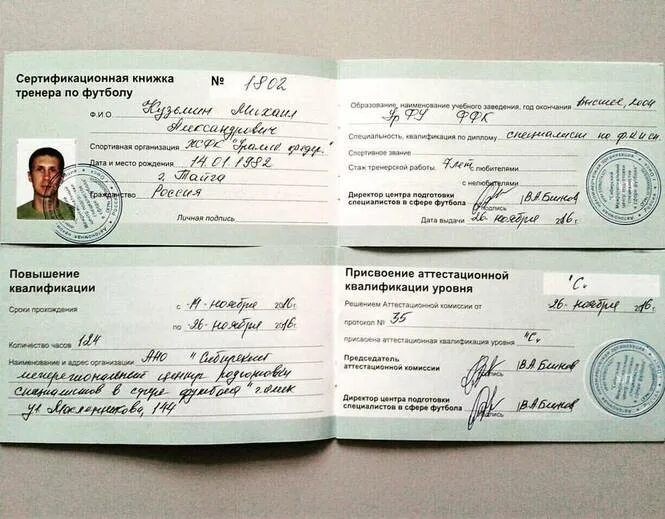 Сертификационная книжка № 1802
тренера по футболу
Ф.И.О. Кузьмин Михаил
Александрович
Спортивная организация
Дата и место рождения 14.01.1982
г. Тайга
Гражданство Россия
Личная подпись
Образование, наименование учебного заведения, год окончания высшее, 2004
УрФУ ФФК
Специальность, квалификация по диплому специалист по ф.к. и сп.
Спортивное звание
Стаж тренерской работы 7 лет с любителями
с нелюбителями
Директор центра подготовки В.А. Блинов
специалистов в сфере футбола подпись
Дата выдачи 26 ноября 2016 г.
Повышение
квалификации
Сроки прохождения с 14 ноября 2016 г.
по 26 ноября 2016 г.
Количество часов 124
Наименование и адрес организации АНО "Сибирский
межрегиональный центр подготовки
специалистов в сфере футбола" г. Омск
ул. Масленникова, 144
Присвоение аттестационной
квалификации уровня "С"
Решением Аттестационной комиссии от 26 ноября 2016 г.
протокол № 35
присвоена аттестационная квалификация уровня "С"
Председатель
аттестационной комиссии подпись В.А. Блинов
Директор центра подготовки
специалистов в сфере футбола подпись В.А. Блинов